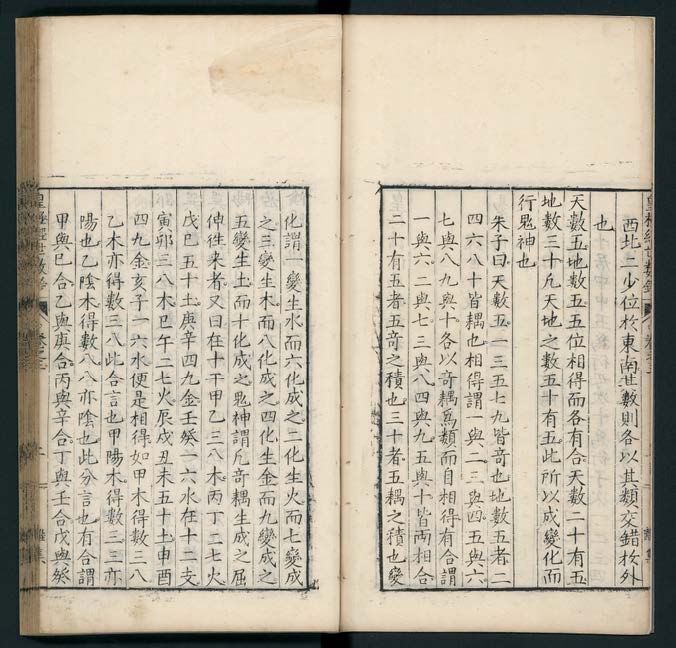 西北二少位於東南其數則各以其類交錯於外
也
天數五地數五五位相得而各有合天數二十有五
地數三十凡天地之數五十有五此所以成變化而
行鬼神也
朱子曰天數五一三五七九皆奇也地數五者二
四六八十皆耦也相得謂一與二三與四五與六
七與八九與十各以奇耦爲類而自相得有合謂
一與六二與七三與八四與九五與十皆兩相合
二十有五者五奇之積也三十者五耦之積也變
化謂一變生水而六化成之二化生火而七變成
之三變生木而八化成之四化生金而九變成之
五變生土而十化成之鬼神謂凡奇耦生成之屈
伸徃来者又曰在十干甲乙三八木丙丁二七火
戊巳五十土庚辛四九金壬癸一六水在十二支
寅卯三八木巳午二七火辰戌丑未五十土申酉
四九金亥子一六水便是相得如甲木得數三八
乙木亦得數三八此合言也甲陽木得數三三亦
陽也乙陰木得數八八亦陰也此分言也有合謂
甲與巳合乙與庚合丙與辛合丁與壬合戊與癸